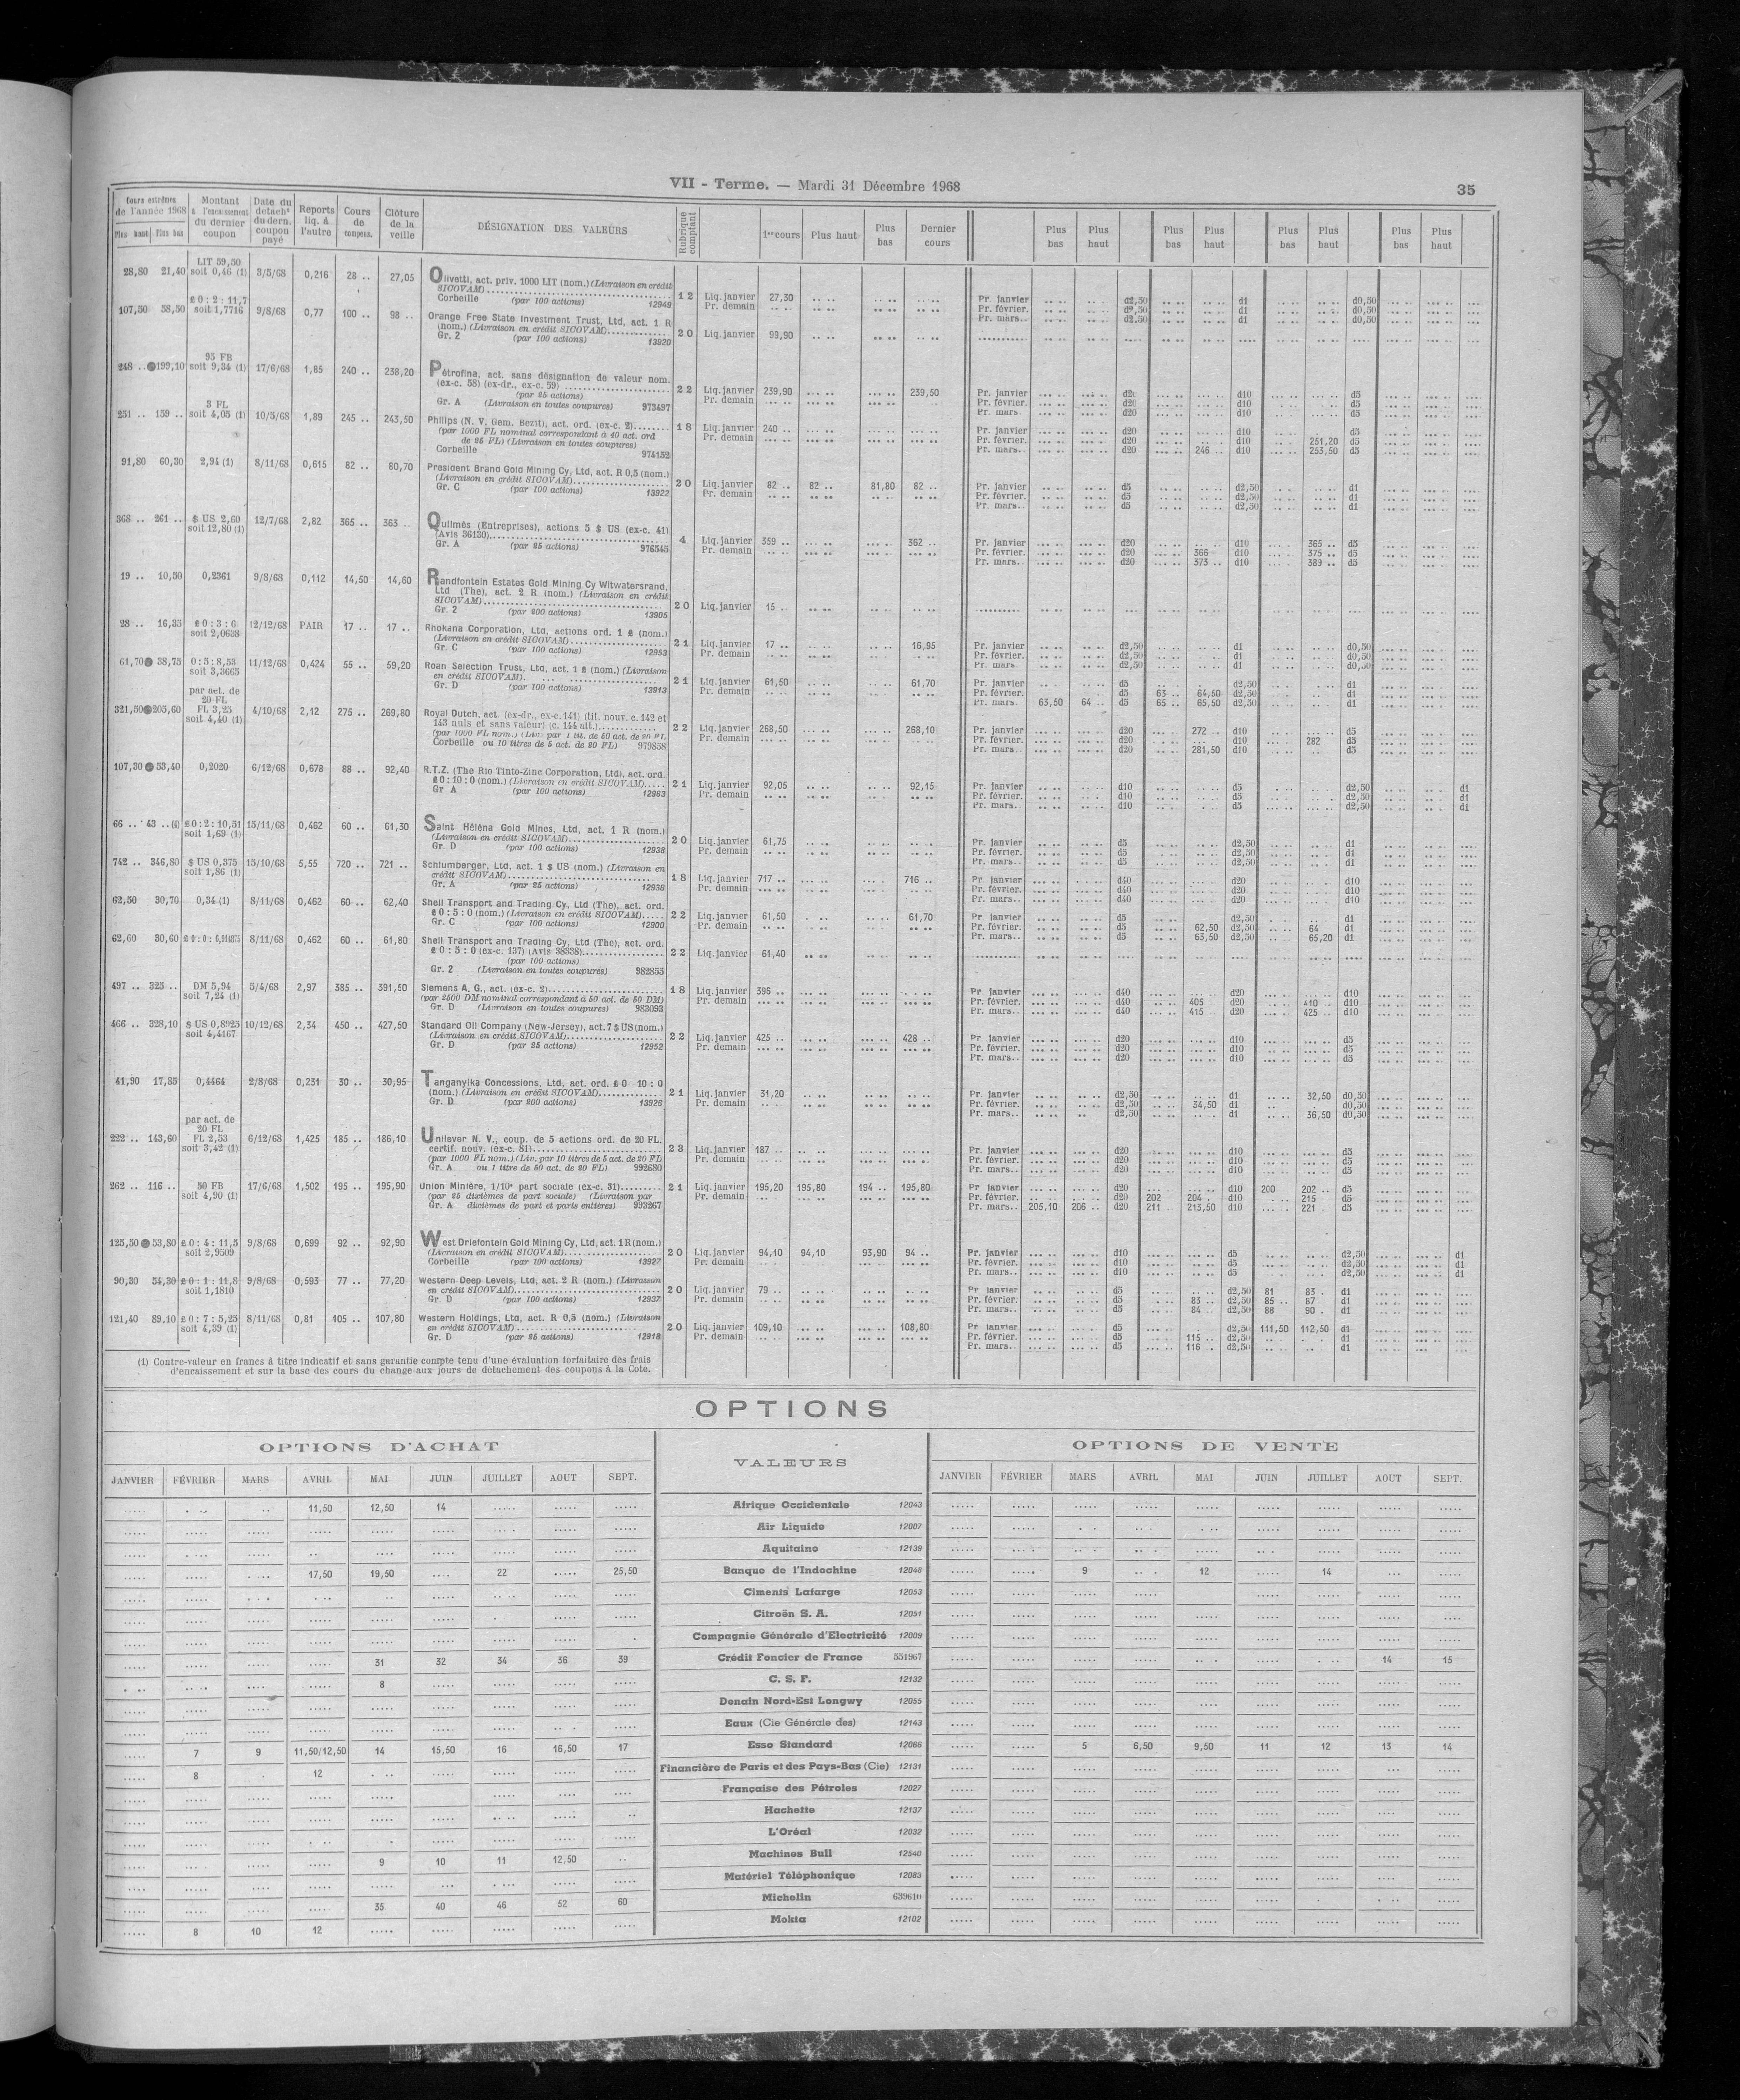 VII - Terme. — Mardi 31 Décembre 1968
35
Cours extrêmes de l'année 1968 Plus haut Plus bas
Montant à l'encaissement du dernier coupon
Date du détacht du dern. coupon payé
Reports liq. à l'autre
Cours de compens.
Clôture de la veille
DÉSIGNATION DES VALEURS
Rubrique comptant
1er cours Plus haut Plus bas Dernier cours
Plus bas Plus haut Plus bas Plus haut Plus bas Plus haut Plus bas Plus haut
LIT 59,50
28,80 21,40 soit 0,46 (1) 3/5/68 0,216 28 .. 27,05 Olivetti, act. priv. 1000 LIT (nom.) (Livraison en crédit
SICOVAM)
Corbeille (par 100 actions) 12949
12 Liq. janvier 27,30
Pr. demain
Pr. janvier d2,50 d1 d0,50
Pr. février. d2,50 d1 d0,50
Pr. mars.. d2,50 d1 d0,50
£ 0 : 2 : 11,7
107,50 58,50 soit 1,7716 9/8/68 0,77 100 .. 98 .. Orange Free State Investment Trust, Ltd, act. 1 R
(nom.) (Livraison en crédit SICOVAM)
Gr. 2 (par 100 actions) 13920
20 Liq. janvier 99,90
95 FB
248 .. 199,10 soit 9,34 (1) 17/6/68 1,85 240 .. 238,20 Pétrofina, act. sans désignation de valeur nom.
(ex-c. 58) (ex-dr., ex-c. 59)
(par 25 actions)
Gr. A (Livraison en toutes coupures) 973497
22 Liq. janvier 239,90 239,50
Pr. demain
Pr. janvier d20 d10 d5
Pr. février. d20 d10 d5
Pr. mars d20 d10 d5
3 FL
251 .. 159 .. soit 4,05 (1) 10/5/68 1,89 245 .. 243,50 Philips (N. V. Gem. Bezit), act. ord. (ex-c. 2)
(par 1000 FL nominal correspondant à 40 act. ord
de 25 FL) (Livraison en toutes coupures)
Corbeille 974152
18 Liq. janvier 240 ..
Pr. demain
Pr. janvier d20 d10 d5
Pr. février. d20 d10 251,20 d5
Pr. mars.. d20 246 .. d10 253,50 d5
91,80 60,30 2,94 (1) 8/11/68 0,615 82 .. 80,70 President Brand Gold Mining Cy, Ltd, act. R 0,5 (nom.)
(Livraison en crédit SICOVAM)
Gr. C (par 100 actions) 13922
20 Liq. janvier 82 .. 82 .. 81,80 82 ..
Pr. demain
Pr. janvier d5 d2,50 d1
Pr. février. d5 d2,50 d1
Pr. mars.. d5 d2,50 d1
368 .. 261 .. $ US 2,60 12/7/68 2,82 365 .. 363 .. Quilmès (Entreprises), actions 5 $ US (ex-c. 41)
soit 12,80 (1) (Avis 36130)
Gr. A (par 25 actions) 976345
4 Liq. janvier 359 .. 362 ..
Pr. demain
Pr. janvier d20 d10 365 .. d5
Pr. février. d20 366 d10 375 .. d5
Pr. mars.. d20 373 .. d10 389 .. d5
19 .. 10,50 0,2361 9/8/68 0,112 14,50 14,60 Randfontein Estates Gold Mining Cy Witwatersrand,
Ltd (The), act. 2 R (nom.) (Livraison en crédit
SICOVAM)
Gr. 2 (par 200 actions) 13905
20 Liq. janvier 15 ..
28 .. 16,35 £ 0 : 3 : 6 12/12/68 PAIR 17 .. 17 .. Rhokana Corporation, Ltd, actions ord. 1 £ (nom.)
soit 2,0638 (Livraison en crédit SICOVAM)
Gr. C (par 100 actions) 12953
21 Liq. janvier 17 .. 16,95
Pr. demain
Pr. janvier d2,50 d1 d0,50
Pr. février. d2,50 d1 d0,50
Pr. mars d2,50 d1 d0,50
61,70 38,75 0 : 5 : 8,53 11/12/68 0,424 55 .. 59,20 Roan Selection Trust, Ltd, act. 1 £ (nom.) (Livraison
soit 3,3665 en crédit SICOVAM).
Gr. D (par 100 actions) 13913
21 Liq. janvier 61,50 61,70
Pr. demain
Pr. janvier d5 d2,50 d1
Pr. février. d5 63 .. 64,50 d2,50 d1
Pr. mars. 63,50 64 .. d5 65 .. 65,50 d2,50 d1
par act. de
20 FL
321,50 205,60 FL 3,25 4/10/68 2,12 275 .. 269,80 Royal Dutch, act. (ex-dr., ex-c. 141) (tit. nouv. c. 142 et
soit 4,40 (1) 143 nuls et sans valeur) (c. 144 att.)
(par 1000 FL nom.) (Liv. par 1 tit. de 50 act. de 20 FL
Corbeille ou 10 titres de 5 act. de 20 FL) 979858
22 Liq. janvier 268,50 268,10
Pr. demain
Pr. janvier d20 272 .. d10 d5
Pr. février. d20 d10 282 d5
Pr. mars d20 281,50 d10 d5
107,30 53,40 0,2020 6/12/68 0,678 88 .. 92,40 R.T.Z. (The Rio Tinto-Zinc Corporation, Ltd), act. ord.
£ 0 : 10 : 0 (nom.) (Livraison en crédit SICOVAM)
Gr A (par 100 actions) 12963
21 Liq. janvier 92,05 92,15
Pr. demain
Pr. janvier d10 d5 d2,50 d1
Pr. février. d10 d5 d2,50 d1
Pr. mars.. d10 d5 d2,50 d1
66 .. 43 .. (1) £ 0 : 2 : 10,51 15/11/68 0,462 60 .. 61,30 Saint Héléna Gold Mines, Ltd, act. 1 R (nom.)
soit 1,69 (1) (Livraison en crédit SICOVAM)
Gr. D (par 100 actions) 12938
20 Liq. janvier 61,75
Pr. demain
Pr. janvier d5 d2,50 d1
Pr. février. d5 d2,50 d1
Pr. mars.. d5 d2,50 d1
742 .. 346,80 $ US 0,375 15/10/68 5,55 720 .. 721 .. Schlumberger, Ltd, act. 1 $ US (nom.) (Livraison en
soit 1,86 (1) crédit SICOVAM)
Gr. A (par 25 actions) 12936
18 Liq. janvier 717 .. 716 ..
Pr. demain
Pr. janvier d40 d20 d10
Pr. février. d40 d20 d10
Pr. mars.. d40 d20 d10
62,50 30,70 0,34 (1) 8/11/68 0,462 60 .. 62,40 Shell Transport and Trading Cy, Ltd (The), act. ord.
£ 0 : 5 : 0 (nom.) (Livraison en crédit SICOVAM)
Gr. C (par 100 actions) 12900
22 Liq. janvier 61,50 61,70
Pr. demain
Pr. janvier d5 d2,50 d1
Pr. février. d5 62,50 d2,50 64 d1
Pr. mars.. d5 63,50 d2,50 65,20 d1
62,60 30,60 8/11/68 0,462 60 .. 61,80 Shell Transport and Trading Cy, Ltd (The), act. ord.
£ 0 : 5 : 0 (ex-c. 137) (Avis 38338)
(par 100 actions)
Gr. 2 (Livraison en toutes coupures) 982855
22 Liq. janvier 61,40
497 .. 325 .. DM 5,94 5/4/68 2,97 385 .. 391,50 Siemens A. G., act. (ex-c. 2)
soit 7,24 (1) (par 2500 DM nominal correspondant à 50 act. de 50 DM)
Gr. D (Livraison en toutes coupures) 983093
18 Liq. janvier 396 ..
Pr. demain
Pr. janvier d40 d20 d10
Pr. février. d40 405 d20 410 d10
Pr. mars.. d40 415 d20 425 .. d10
466 .. 328,10 $ US 0,8925 10/12/68 2,34 450 .. 427,50 Standard Oil Company (New-Jersey), act. 7 $ US (nom.)
soit 4,4167 (Livraison en crédit SICOVAM)
Gr. D (par 25 actions) 12952
22 Liq. janvier 425 .. 428 ..
Pr. demain
Pr. janvier d20 d10 d5
Pr. février. d20 d10 d5
Pr. mars.. d20 d10 d5
41,90 17,85 0,4464 2/8/68 0,231 30 .. 30,95 Tanganyika Concessions, Ltd, act. ord. £ 0 10 : 0
(nom.) (Livraison en crédit SICOVAM)
Gr. D (par 200 actions) 13926
21 Liq. janvier 31,20
Pr. demain
Pr. janvier d2,50 d1 32,50 d0,50
Pr. février. d2,50 34,50 d1 d0,50
Pr. mars.. d2,50 d1 36,50 d0,50
par act. de
20 FL
222 .. 143,60 FL 2,53 6/12/68 1,425 185 .. 186,10 Unilever N. V., coup. de 5 actions ord. de 20 FL,
soit 3,42 (1) certif. nouv. (ex-c. 81)
(par 1000 FL nom.) (Liv. par 10 titres de 5 act. de 20 FL
Gr. A ou 1 titre de 50 act. de 20 FL) 992680
23 Liq. janvier 187 ..
Pr. demain
Pr. janvier d20 d10 d5
Pr. février. d20 d10 d5
Pr. mars.. d20 d10 d5
262 .. 116 .. 50 FB 17/6/68 1,502 195 .. 195,90 Union Minière, 1/10e part sociale (ex-c. 31)
soit 4,90 (1) (par 25 dixièmes de part sociale) (Livraison par
Gr. A dixièmes de part et parts entières) 993267
21 Liq. janvier 195,20 195,80 194 .. 195,80
Pr. demain
Pr. janvier d20 d10 200 202 .. d5
Pr. février. d20 202 204 d10 215 d5
Pr. mars.. 205,10 206 .. d20 211 213,50 d10 221 d5
125,50 53,80 £ 0 : 4 : 11,5 9/8/68 0,699 92 .. 92,90 West Driefontein Gold Mining Cy, Ltd, act. 1 R (nom.)
soit 2,9509 (Livraison en crédit SICOVAM)
Corbeille (par 100 actions) 13927
20 Liq. janvier 94,10 94,10 93,90 94 ..
Pr. demain
Pr. janvier d10 d5 d2,50 d1
Pr. février. d10 d5 d2,50 d1
Pr. mars.. d10 d5 d2,50 d1
90,30 54,30 £ 0 : 1 : 11,8 9/8/68 0,593 77 .. 77,20 Western Deep Levels, Ltd, act. 2 R (nom.) (Livraison
soit 1,1810 en crédit SICOVAM)
Gr. D (par 100 actions) 12937
20 Liq. janvier 79 ..
Pr. demain
Pr. janvier d5 d2,50 81 83 . d1
Pr. février. d5 83 .. d2,50 85 .. 87 d1
Pr. mars.. d5 84 .. d2,50 88 90 . d1
121,40 89,10 £ 0 : 7 : 5,25 8/11/68 0,81 105 .. 107,80 Western Holdings, Ltd, act. R 0,5 (nom.) (Livraison
soit 4,39 (1) en crédit SICOVAM)
Gr. D (par 25 actions) 12918
20 Liq. janvier 109,10 108,80
Pr. demain
Pr. janvier d5 d2,50 111,50 112,50 d1
Pr. février. d5 115 .. d2,50 d1
Pr. mars.. d5 116 .. d2,50 d1
(1) Contre-valeur en francs à titre indicatif et sans garantie compte tenu d'une évaluation forfaitaire des frais
d'encaissement et sur la base des cours du change aux jours de détachement des coupons à la Cote.
OPTIONS
OPTIONS D'ACHAT
VALEURS
OPTIONS DE VENTE
JANVIER FÉVRIER MARS AVRIL MAI JUIN JUILLET AOUT SEPT.
JANVIER FÉVRIER MARS AVRIL MAI JUIN JUILLET AOUT SEPT.
11,50 12,50 14 Afrique Occidentale 12043
Air Liquide 12007
Aquitaine 12139
17,50 19,50 22 25,50 Banque de l'Indochine 12048 9 12 14
Ciments Lafarge 12053
Citroën S. A. 12051
Compagnie Générale d'Electricité 12009
31 32 34 36 39 Crédit Foncier de France 551967 14 15
8 C. S. F. 12132
Denain Nord-Est Longwy 12055
Eaux (Cie Générale des) 12143
7 9 11,50/12,50 14 15,50 16 16,50 17 Esso Standard 12066 5 6,50 9,50 11 12 13 14
8 12 Financière de Paris et des Pays-Bas (Cie) 12131
Française des Pétroles 12027
Hachette 12137
L'Oréal 12032
9 10 11 12,50 Machines Bull 12540
Matériel Téléphonique 12083
35 40 46 52 60 Michelin 639610
8 10 12 Mokta 12102